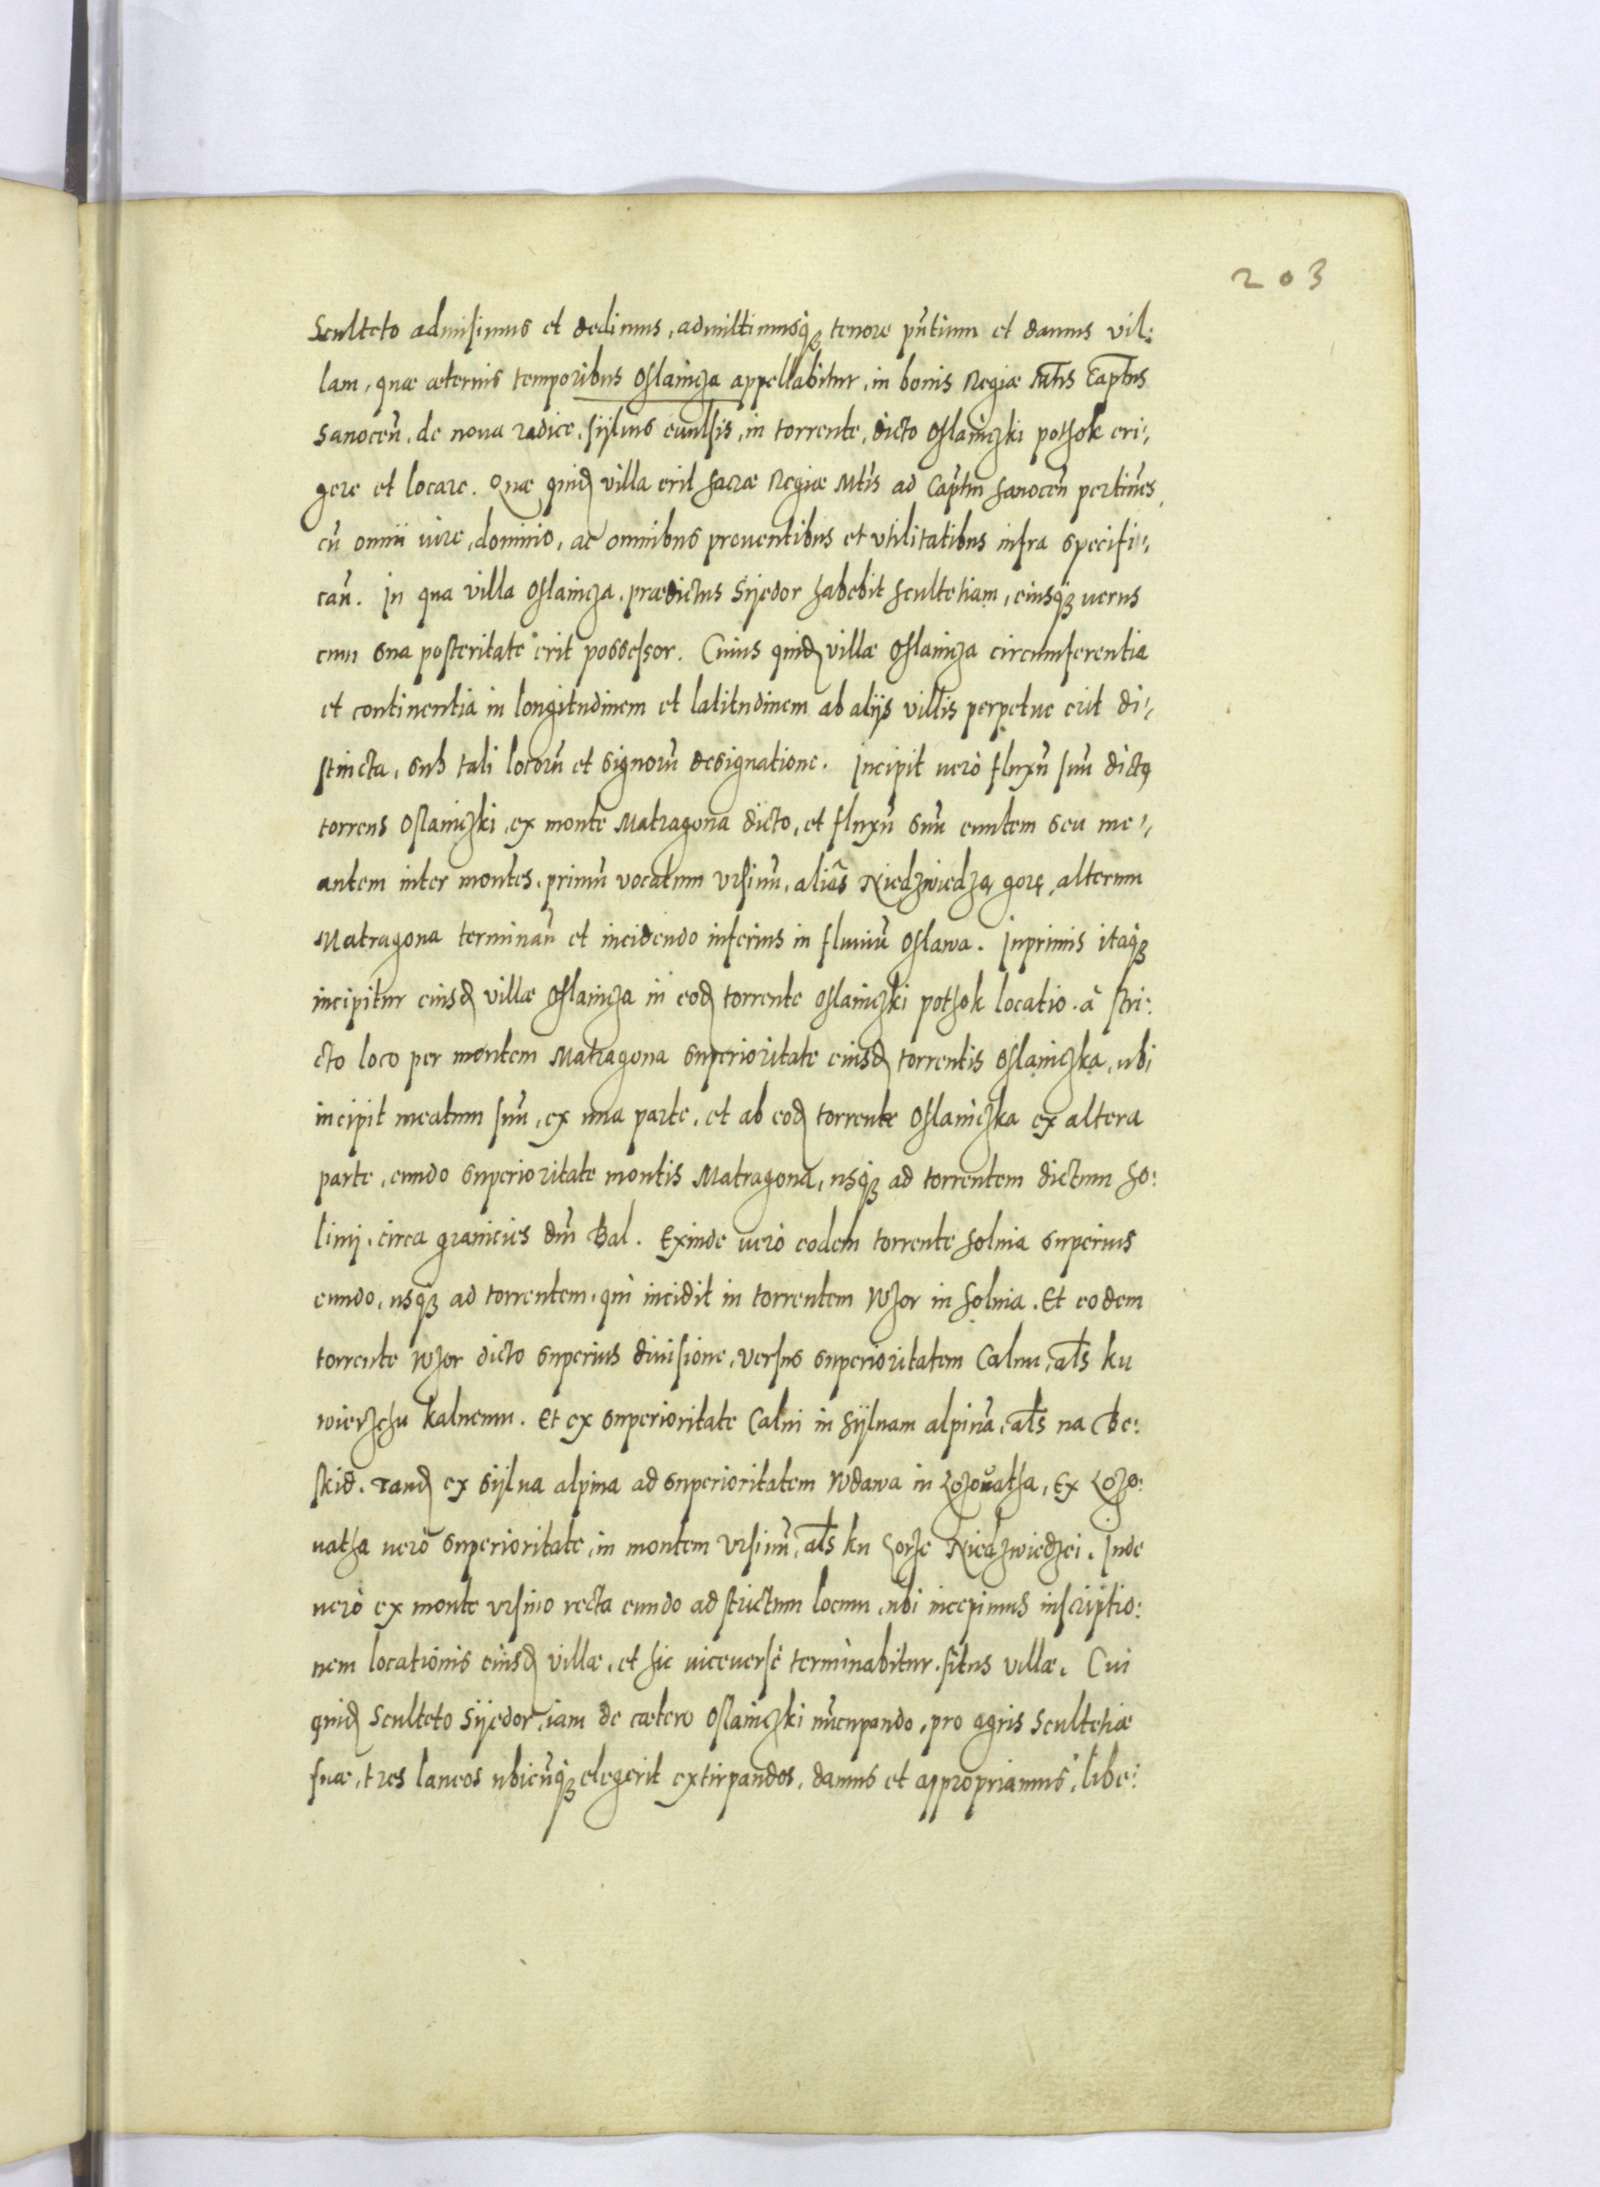 203
Sculteto admisimus et dedimus, admittimusq₃ tenore pñtium et damus vil:
lam, quæ æternis temporibus Oslawicza appellabitur, in bonis Regiæ Mtis Captus
Sanoceñ. de noua radice, sÿluis euulsis, in torrente, dicto Oslawiczki pothok eri:
gere et locare. Quæ quid villa erit Sacræ Regiæ Mtis ad Captm Sanoceñ pertines
cũ omni iure, dominio, ac omnibus prouentibus et vtilitatibus infra specifi:
cañ. In qua villa Oslawicza, prædictus Sÿedor habebit Scultetiam, eiusq₃ uerus
cum sua posteritate erit possessor. Cuius quid villæ Oslawicza circumferentia
et continentia in longitudinem et latitudinem ab alijs villis perpetue erit di:
stincta, sub tali locorũ et signorũ designatione. Incipit uerò fluxũ suũ dictꝯ
torrens Oslawiczki, ex monte Matragona dicto, et fluxũ suũ euntem seu me:
antem inter montes, primũ vocatum vrsinũ, aliàs Niedzwiedzą gorę, alterum
Matragona terminañ et incidendo inferius in fluuiũ Oslawa. Inprimis itaq₃
incipitur eiusd villæ Oslawicza in eod torrente Oslawiczki pothok locatio. à stri:
cto loco per montem Matragona superioritate eiusd torrentis Oslawiczka, ubi
incipit meatum suũ, ex una parte, et ab eod torrente Oslawiczka ex altera
parte, eundo superioritate montis Matragona, usq₃ ad torrentem dictum So:
linij, circa granicies dñi Bal. Exinde uerò eodem torrente Solnia superius
eundo, usq₃ ad torrentem, qui incidit in torrentem Wzor in Solnia. Et eodem
torrente Wzor dicto superius diuisione, versus superioritatem Calnu, als ku
wierzchu kalnemu. Et ex superioritate Calni in Sÿluam alpinã, als na Be:
skid. Tand ex sÿlua alpina ad superioritatem Wdawa in Lozouatha, Ex Lozo:
uatha uerò superioritate, in montem vrsinũ, als ku Horze Niedzwiedzei. Inde
uerò ex monte vrsino recta eundo ad strictum locum, ubi incepimus inscriptio:
nem locationis eiusd villæ, et sic uiceuersè terminabitur situs villæ. Cui
quid Sculteto Sÿedor, iam de cætero Oslawiczki nũcupando, pro agris Scultetiæ
suæ, tres laneos ubicũq₃ elegerit extirpandos, damus et appropriamus, libe: